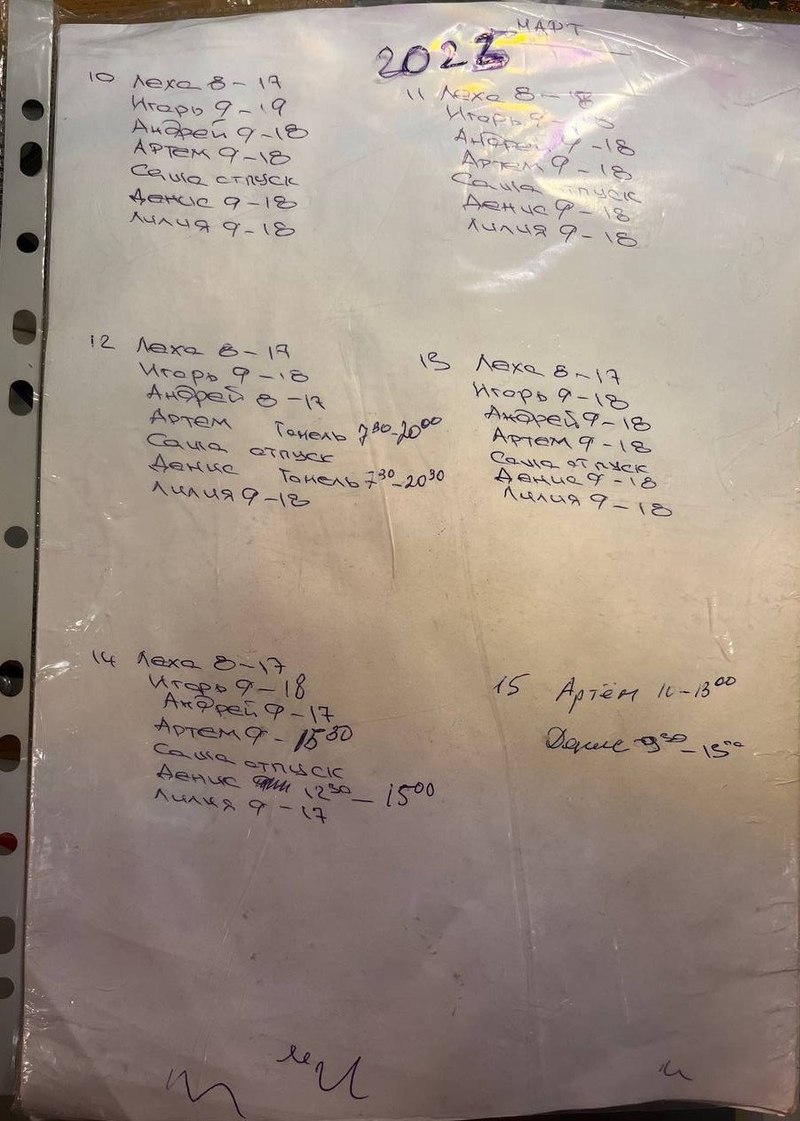 МАРТ
2025
10 Леха 8-17
Игорь 9-19
Андрей 9-18
Артем 9-18
Саша отпуск
Денис 9-18
Лилия 9-18
11 Леха 8-18
Игорь 9-18
Андрей 9-18
Артем 9-18
Саша отпуск
Денис 9-18
Лилия 9-18
12 Леха 8-17
Игорь 9-18
Андрей 8-17
Артем Тонель 7³⁰-20⁰⁰
Саша отпуск
Денис Тонель 7³⁰-20³⁰
Лилия 9-18
13 Леха 8-17
Игорь 9-18
Андрей 9-18
Артем 9-18
Саша отпуск
Денис 9-18
Лилия 9-18
14 Леха 8-17
Игорь 9-18
Андрей 9-17
Артем 9-15³⁰
Саша отпуск
Денис 12³⁰-15⁰⁰
Лилия 9-17
15 Артём 10-13⁰⁰
Денис 9³⁰-15⁰⁰